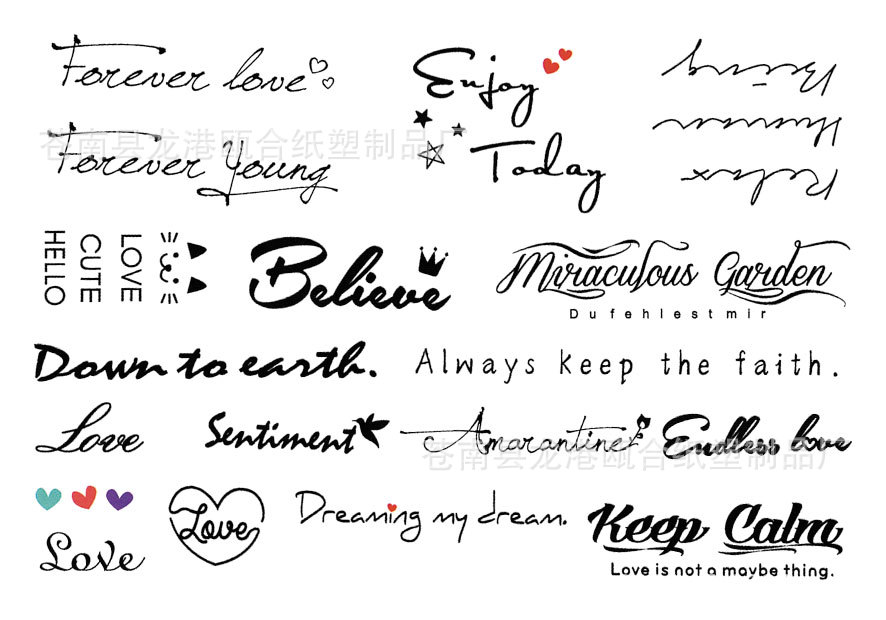 Forever love
Forever Young
苍南县龙港瓯合纸塑制品厂
Enjoy
Today
Being
Human
Relax
LOVE
CUTE
HELLO
Believe
Miraculous Garden
Dufehlestmir
Down to earth.
Always keep the faith.
Love
Sentiment
Amarantine
Endless love
苍南县龙港瓯合纸塑制品厂
Love
Love
Dreaming my dream.
Keep Calm
Love is not a maybe thing.